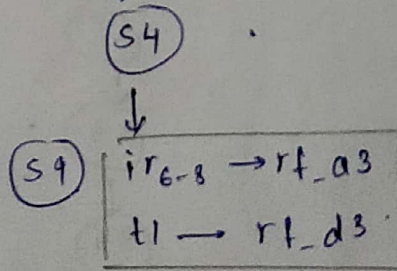 S4
↓
S9
ir6-8 → rf_a3
t1 → rf_d3